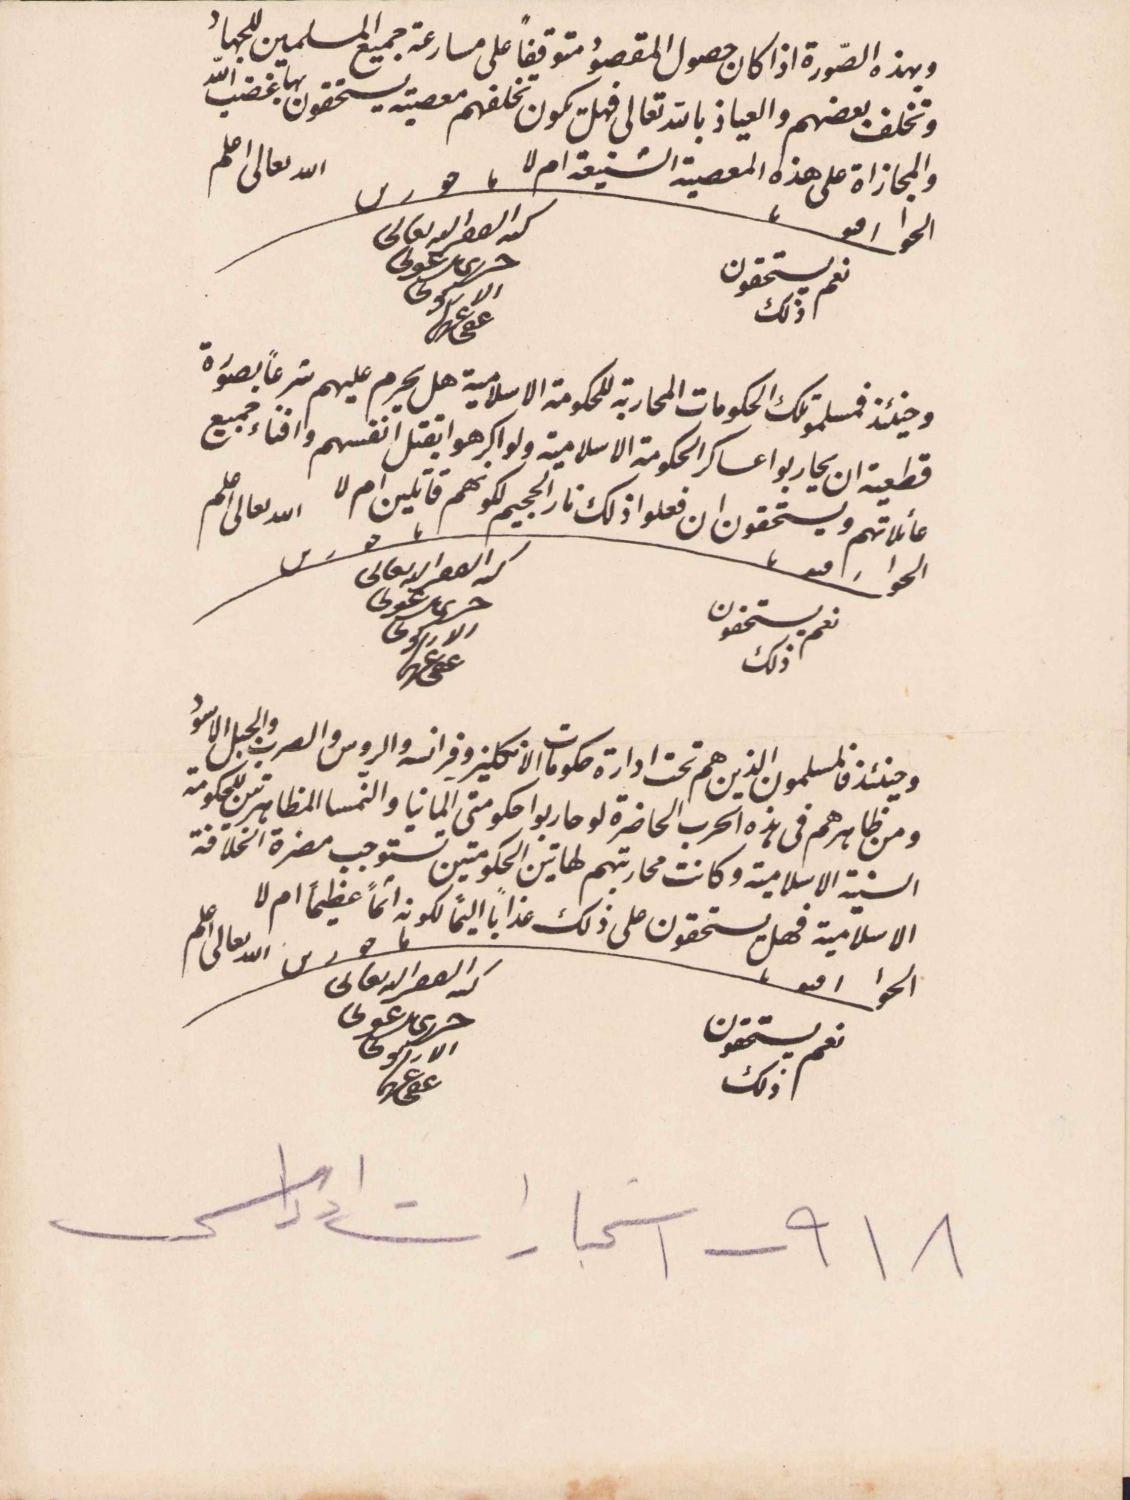 وبهذه الصّورة اذا كان حصول المقصود متوقفاً على مسارعة جميع المسلمين للجهاد
وتخلف بعضهم والعياذ بالله تعالى فهل يكون تخلفهم معصية يستحقون بها غضب الله
والمجازاة على هذه المعصية الشنيعة ام لا
الله تعالى اعلم
الجواب
نعم يستحقون
ذلك
كتبه الفقير اليه تعالى
خيرى بن عونى
الاركوبى
عفى عنهما
وحينئذ فمسلمو تلك الحكومات المحاربة للحكومة الاسلامية هل يحرم عليهم شرعاً بصورة
قطعية ان يحاربوا عساكر الحكومة الاسلامية ولو اكرهوا بقتل انفسهم وافناء جميع
عائلاتهم ويستحقون ان فعلوا ذلك نار الجحيم لكونهم قاتلين ام لا
الله تعالى اعلم
الجواب
نعم يستحقون
ذلك
كتبه الفقير اليه تعالى
خيرى بن عونى
الاركوبى
عفى عنهما
وحينئذ فالمسلمون الذين هم تحت ادارة حكومات الانكليز وفرانسه والروس والصرب والجبل الاسود
ومن ظاهرهم فى هذه الحرب الحاضرة لو حاربوا حكومتى المانيا والنمسا المظاهرتين للحكومة
السنية الاسلامية وكانت محاربتهم لهاتين الحكومتين تستوجب مضرة الخلافة
الاسلامية فهل يستحقون على ذلك عذاباً اليماً لكونه اثماً عظيماً ام لا
الله تعالى اعلم
الجواب
نعم يستحقون
ذلك
كتبه الفقير اليه تعالى
خيرى بن عونى
الاركوبى
عفى عنهما
٩١٨ استخبارات اداره سى